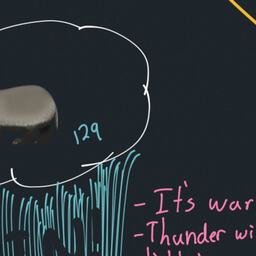 129
- It's war
- Thunder wi